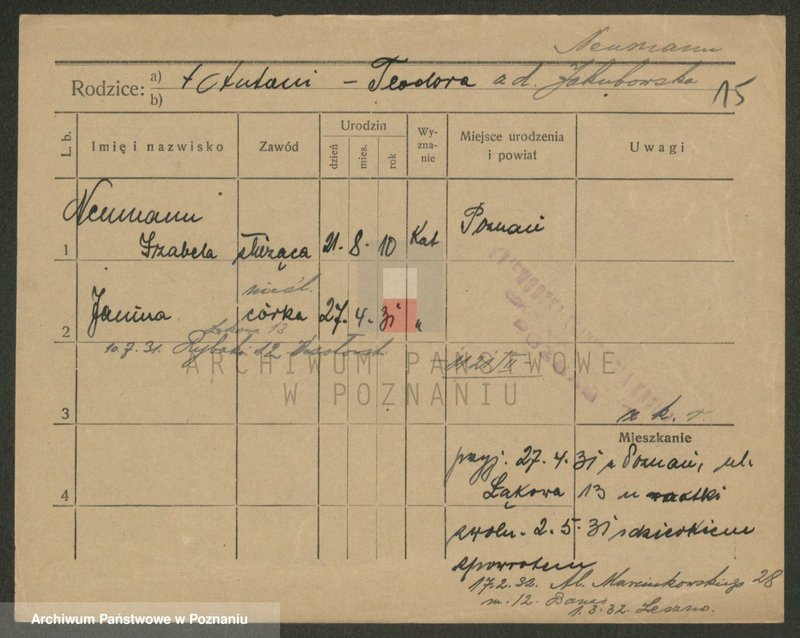 Neumann
Rodzice: a) b) † Antoni – Teodora z d. Jakubowska 15
L. b. Imię i nazwisko Zawód Urodzin dzień mies. rok Wyznanie Miejsce urodzenia i powiat Uwagi
Neumann
1 Izabela służąca 21. 8. 10 Kat Poznań
nieśl.
2 Janina córka 27. 4. 31 "
Łąkowa 13
10.7.31. Rybaki 12
ARCHIWUM PAŃSTWOWE
W POZNANIU
3
z k. r.
Mieszkanie
przyj. 27. 4. 31 z Poznań, ul.
4 Łąkowa 13 u matki
zwoln. 2. 5. 31 z dzieckiem
spowrotem
17.2.32. Al. Marcinkowskiego 28
m. 12. 1.3.32. Leszno.
Archiwum Państwowe w Poznaniu